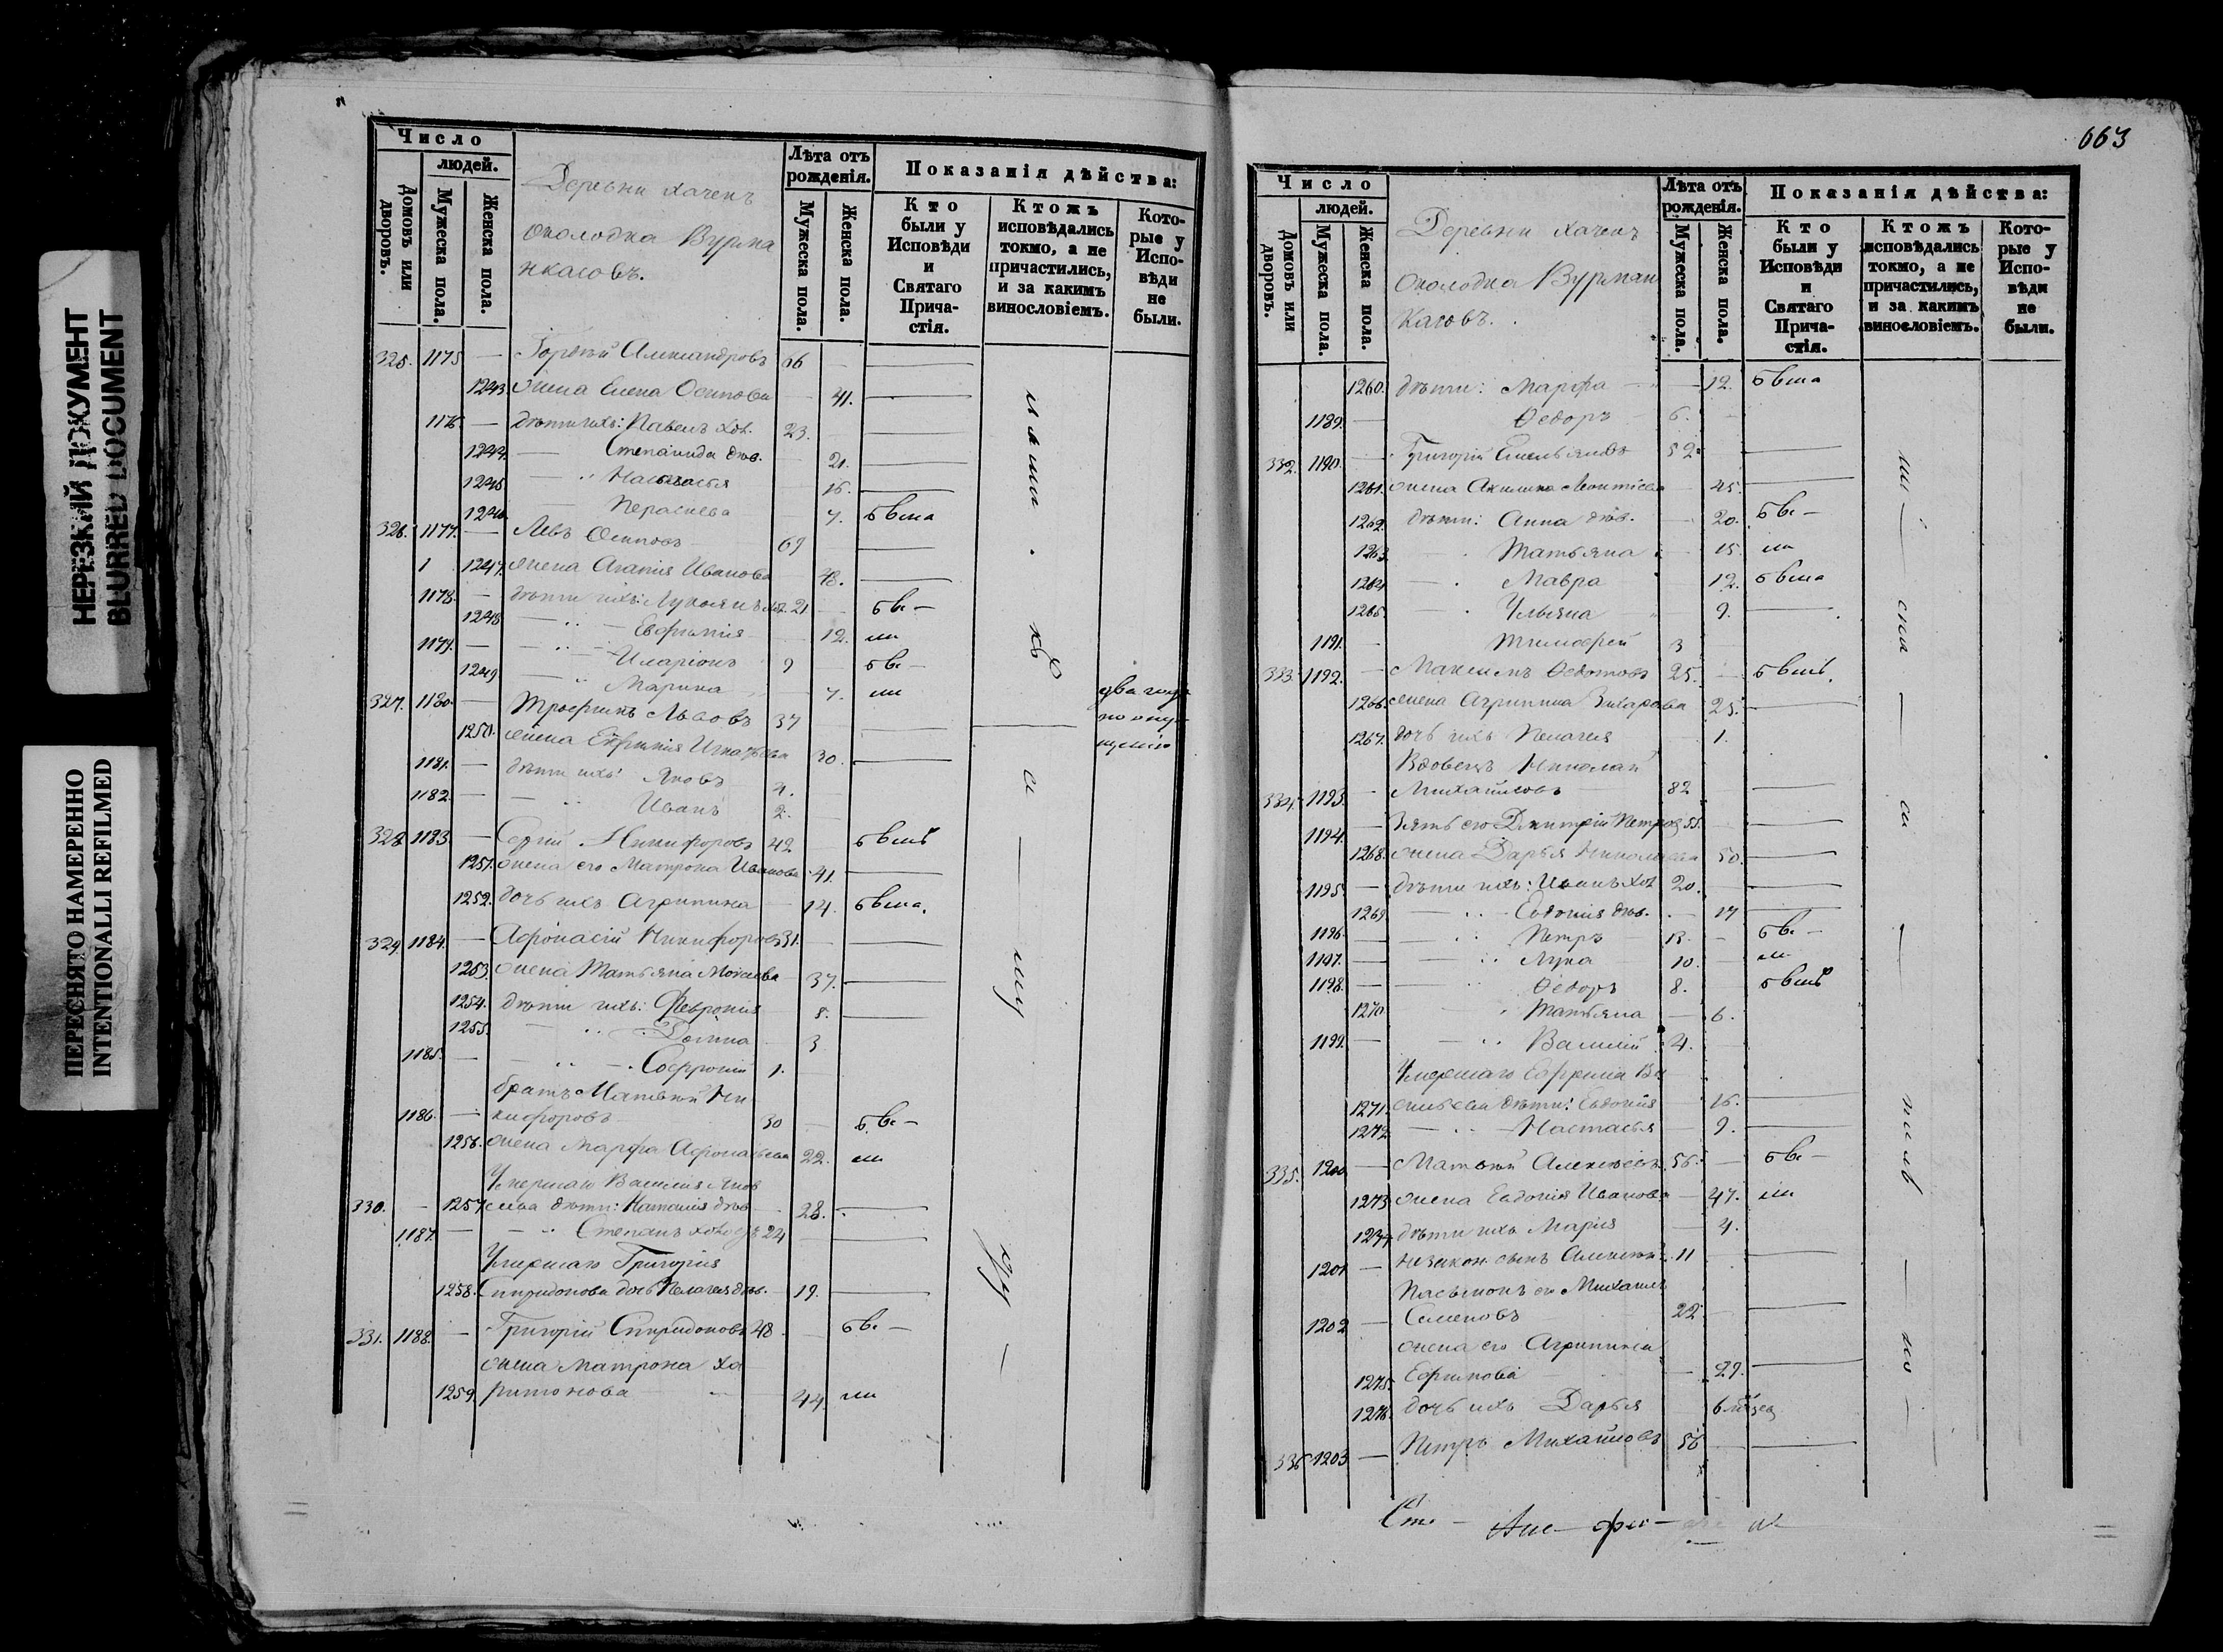 НЕРЕЗКИЙ ДОКУМЕНТ
BLURRED DOCUMENT
ПЕРЕСНЯТО НАМЕРЕННО
INTENTIONALLI REFILMED
Число
людей.
Домовъ или дворовъ.
Мужеска пола.
Женска пола.
Деревни Хачекъ
околодка Вурма
нкасовъ.
Лѣта отъ рожденія.
Мужеска пола.
Женска пола.
Показанія дѣйства:
Кто были у Исповѣди и Святаго Прича-стія.
Ктожъ исповѣдались токмо, а не причастились, и за какимъ винословіемъ.
Кото-рые у Испо-вѣди не были.
325. 1175 — Гордѣй Александровъ
1243. жена Елена Осипова 41.
1176. — дѣти ихъ: Павелъ хол. 23.
1244. — Степанида дѣв. 21.
1245 — Настасья 16.
1246. Параскева 7. бвша
326. 1177. — Левъ Осиповъ 69
1247. жена Агапія Иванова 48.
1178. — дѣти ихъ: Лукоянъ хол. 21 бвс —
1248 — Евфимія 12. ши
1179. — Иларіонъ 9 бвс —
1249 — Марина 7. ши
327. 1180. — Трофимъ Львовъ 37
1250. жена Евфимія Игнатьева 30.
два года
по опу
щенію
1181. — дѣти ихъ: Яковъ 4.
1182. — Иванъ 2.
328. 1183. — Сергій Никифоровъ 42 бвшъ
1251. жена его Матрона Иванова 41.
1252. дочь ихъ Агрипина 14. бвша.
329. 1184. — Афонасій Никифоровъ 31.
1253. жена Татьяна Моисеева 37.
1254. дѣти ихъ: Февронія 8.
1255. Домна 3
1185. — Софроній 1.
братъ Матвей Ни
1186. — кифоровъ 30 бвс —
1256. жена Марфа Афонасьева 22. ши
Умершаго Василия Яков
330. — 1257 лева дѣти: Наталія дѣв 28.
1187. — Степанъ 24
Умершаго Григорія
1258. Спиридонова дочь Пелагея дѣв. 19.
331. 1188. — Григорій Спиридоновъ 48 бвс —
жена Матрона Ха
1259. ритонова 44. ши
663
Число
людей.
Домовъ или дворовъ.
Мужеска пола.
Женска пола.
Деревни Хачекъ
Околодка Вурман
Касовъ.
Лѣта отъ рожденія.
Мужеска пола.
Женска пола.
Показанія дѣйства:
Кто были у Исповѣди и Святаго Прича-стія.
Ктожъ исповѣдались токмо, а не причастились, и за какимъ винословіемъ.
Кото-рые у Испо-вѣди не были.
1260. дѣти: Марфа 12. бвша
1189. — Ѳедоръ 6.
332. 1190. — Григорій Емельяновъ 52.
1261. жена Акилина Леонтіева 45.
1262. дѣти: Анна дѣв. 20. бвс —
1263. Татьяна 15. ши
1264 Мавра 12. бвша
1265. Ульяна 9.
1191. — Тимофей 3
333. 1192. — Максимъ Ѳедотовъ 25. бвшъ.
1266. жена Агрипина Захарова 25.
1267. дочь ихъ Пелагея 1.
Вдовецъ Николай
334. 1193. — Михайловъ 82
1194. — Зять его Дмитрій Петровъ 55.
1268. жена Дарья Николаева 50.
1195. — дѣти ихъ: Иванъ хол 20.
1269. Евдокія дѣв. 17
1196. — Петръ 13. бвс —
1197. — Лука 10. ши
1198. — Ѳедоръ 8. бвшъ
1270. Татьяна 6.
1199. — Василій 4.
Умершаго Ефрема Ва
1271. сильева дѣти: Евдокія 16.
1272. — Настасья 9.
335. 1200. — Матвей Алексѣевъ 56. бвс —
1273. жена Евдокія Иванова 47. ши
1274 дѣти ихъ Марія 4.
1201. — Незакон. сынъ Алексѣй 11
Пасынокъ его Михаилъ
1202 — Семеновъ 22
жена его Агрипина
1275. Ефимова 27.
1276. дочь ихъ Дарья 6 мѣсяц
336 1203 — Петръ Михайловъ 56